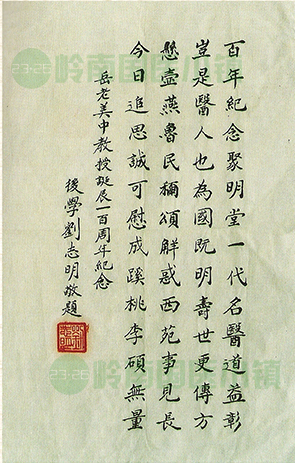 百年紀念聚明堂一代名醫道益彰
豈是醫人也為國既明壽世更傳方
懸壺燕魯民穪頌觧惑西苑事見長
今日追思誠可慰成蹊桃李碩無量
岳老美中教授誕辰一百周年紀念
後學劉志明敬題